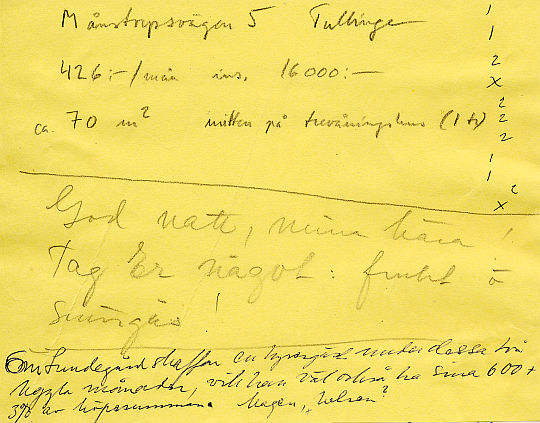 Månstorpsvägen 5 Tullinge
426:-/mån ins. 16000:-
ca. 70 m² mitten på trevåningshus (1 tr)
1
1
2
x
2
2
2
1
1
2
x
God natt, mina kära!
Tag Er något: frukt o
smörgås!
Om Sundegård skaffar en hyresgäst under dessa två
månader, vill han väl också ha sina 600 +
3% av köpesumman.